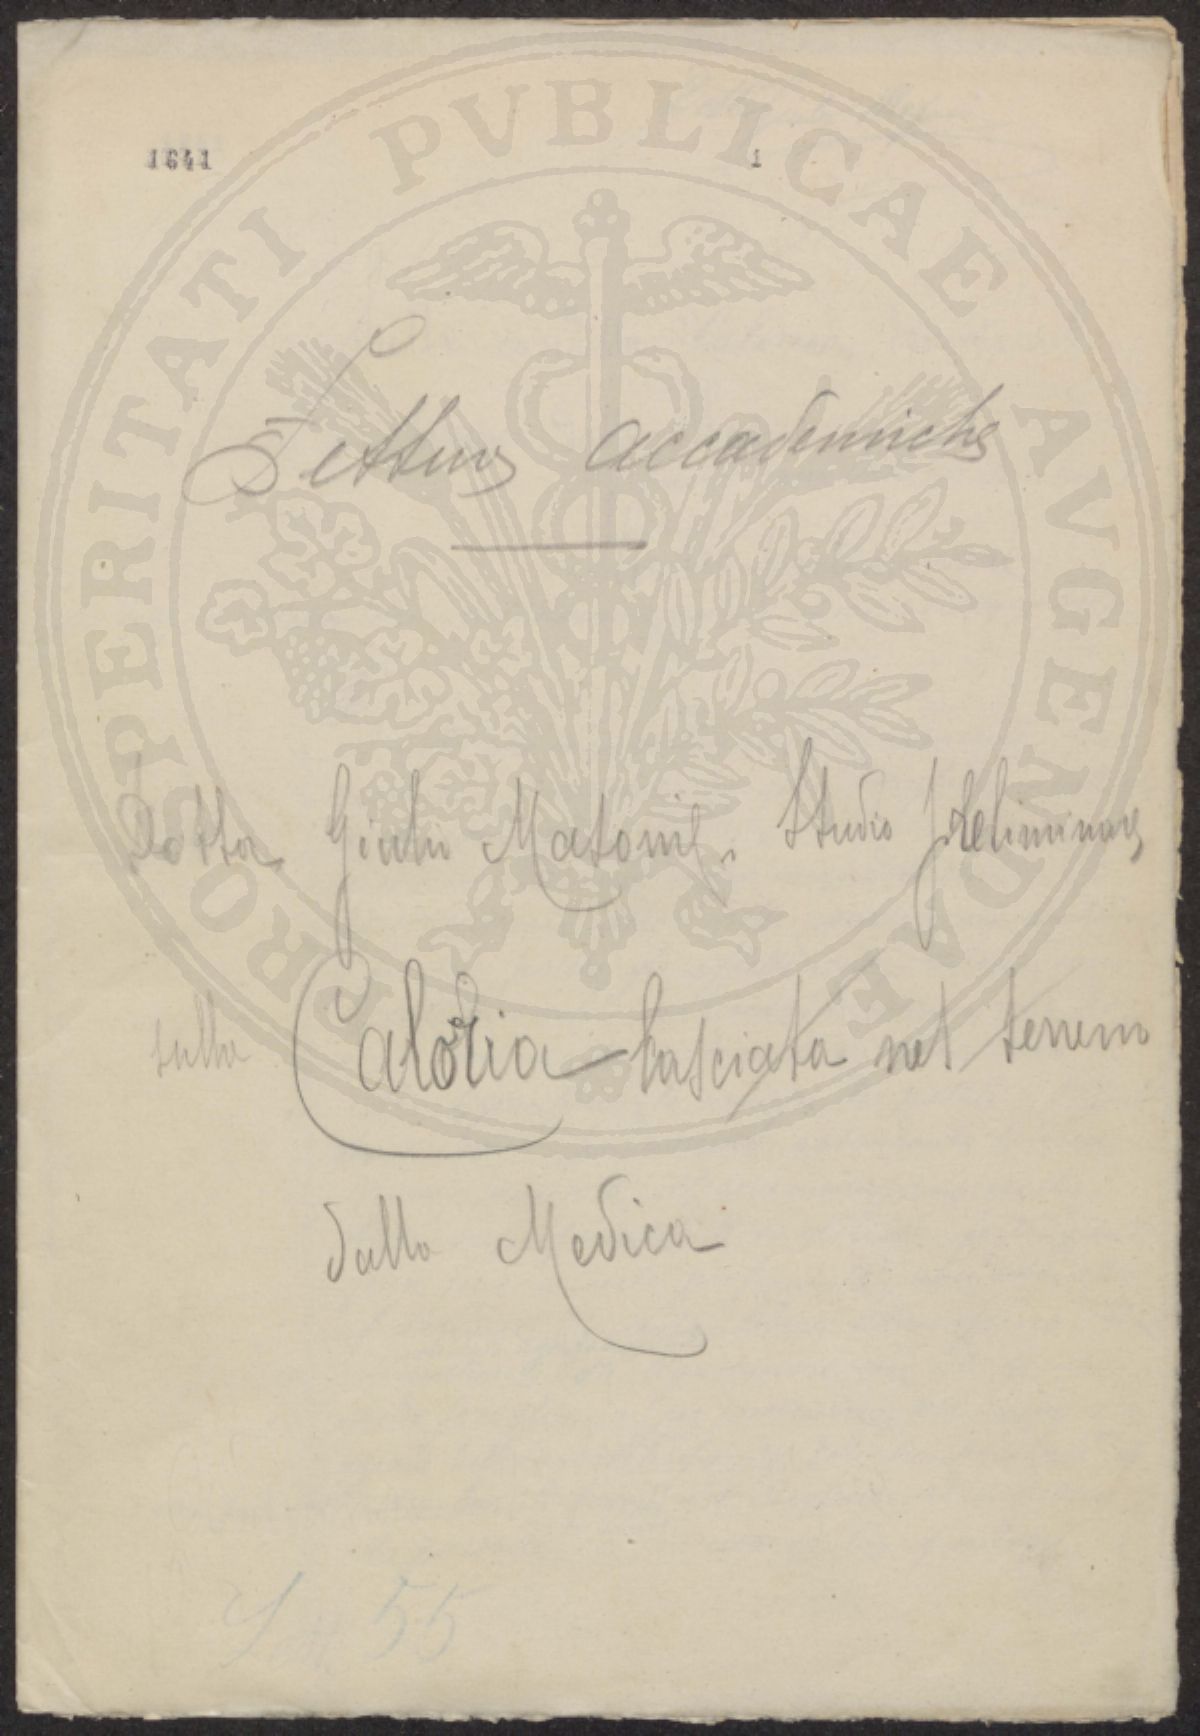 1641 1
PROSPERITATI PVBLICAE AVGENDAE
Letture accademiche
Dottor Giulio Masoni. Studio preliminare
sulla Caloria lasciata nel terreno
dalla Medica
55